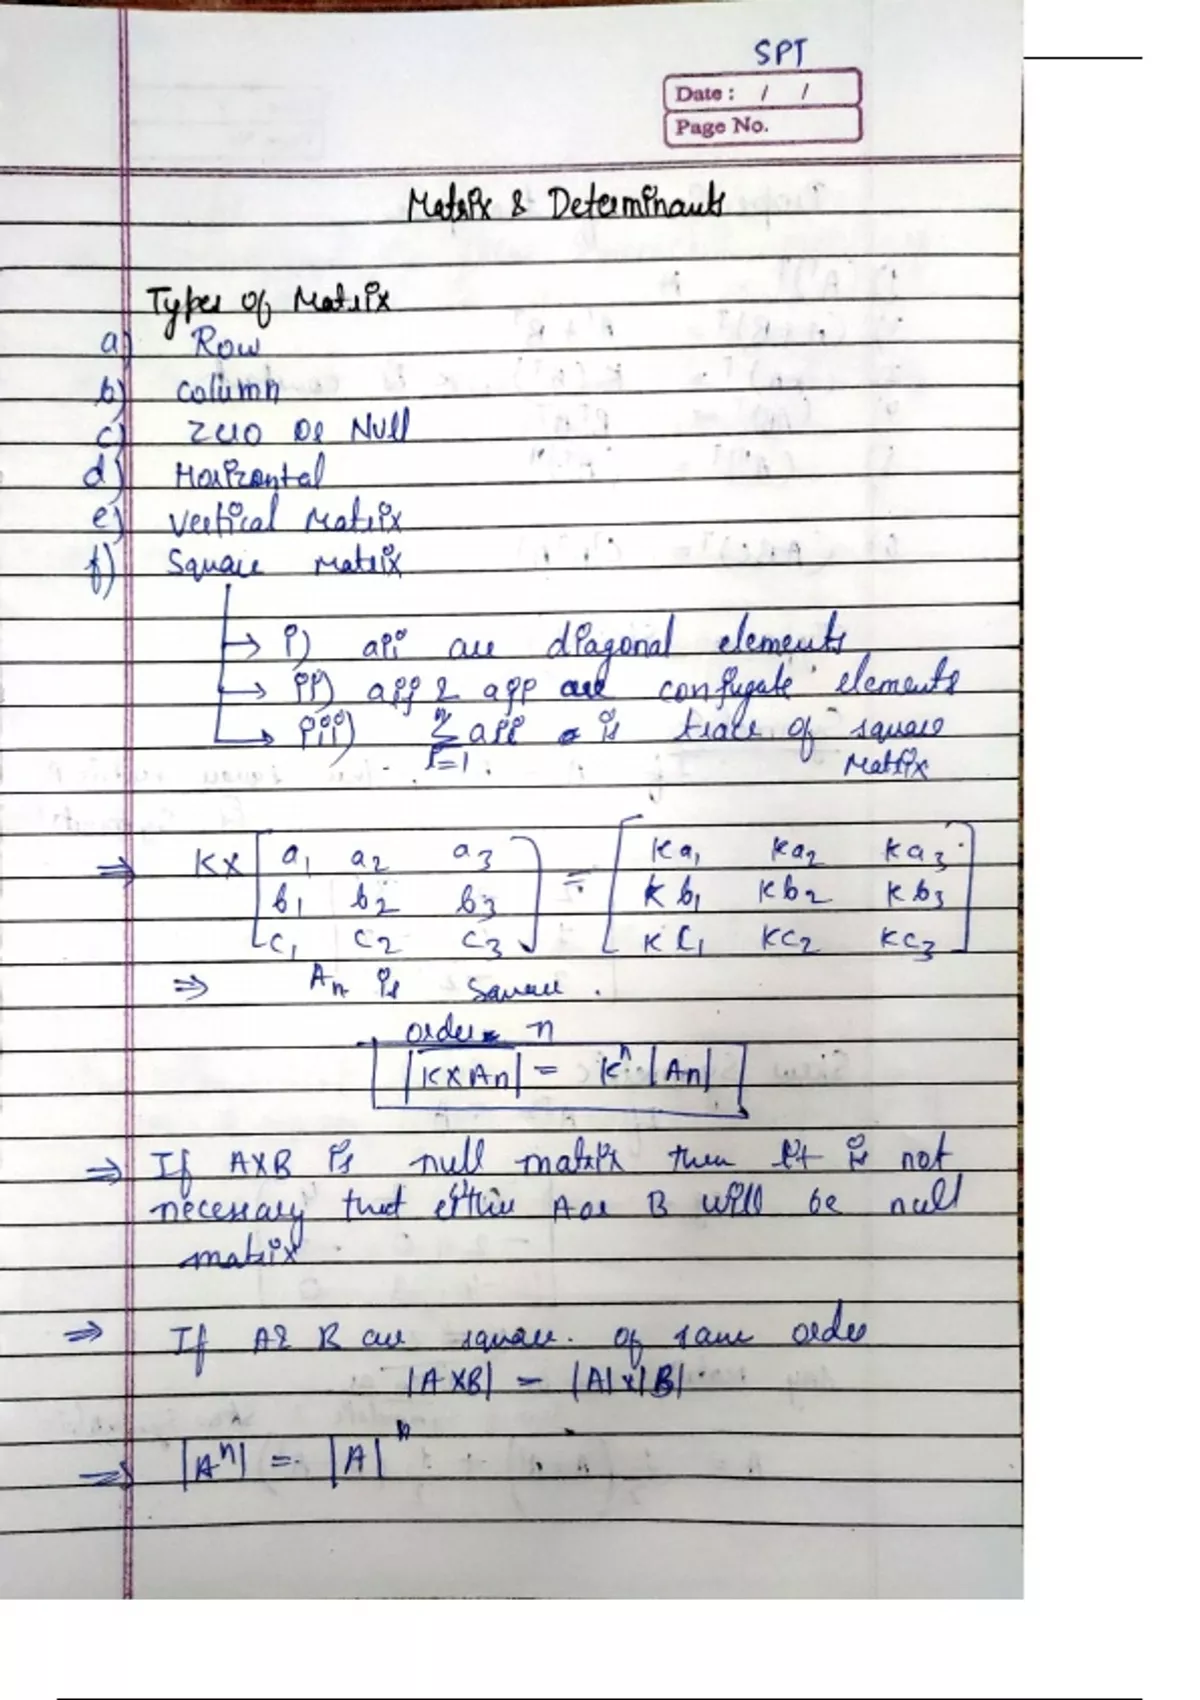 SPT
Date : / /
Page No.
Matrix & Determinants
Types of Matrix
a) Row
b) column
c) zero or Null
d) Horizontal
e) Vertical Matrix
f) Square matrix
→ i) aii are diagonal elements
→ ii) aij & aji are conjugate elements
→ iii) n∑i=1 aii is trace of square
Matrix
⇒ K× [a₁ a₂ a₃ = [Ka₁ Ka₂ Ka₃
b₁ b₂ b₃ Kb₁ Kb₂ Kb₃
c₁ c₂ c₃] Kc₁ Kc₂ Kc₃]
⇒ Aₙ is square.
order = n
|K×Aₙ| = Kⁿ |Aₙ|
⇒ If A×B is null matrix then it is not
necessary that either A or B will be null
matrix
⇒ If A & B are square. of same order
|A×B| = |A|×|B|
⇒ |Aⁿ| = |A|ⁿ